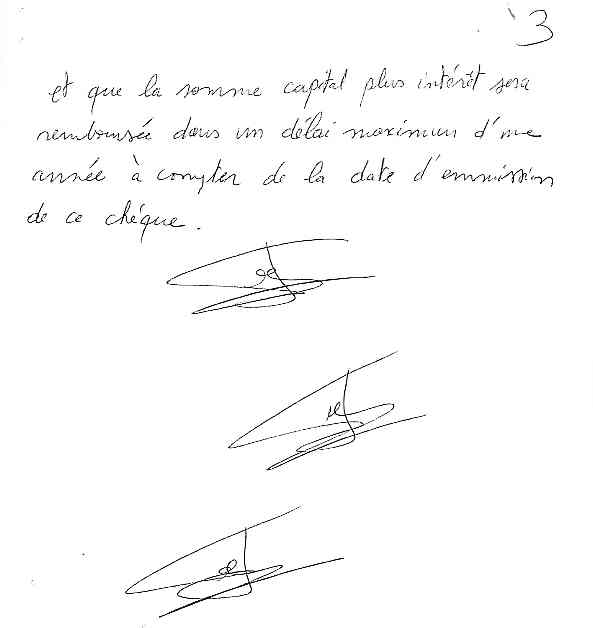 3
et que la somme capital plus intérêt sera
remboursée dans un délai maximun d'une
année à compter de la date d'emmission
de ce chéque.